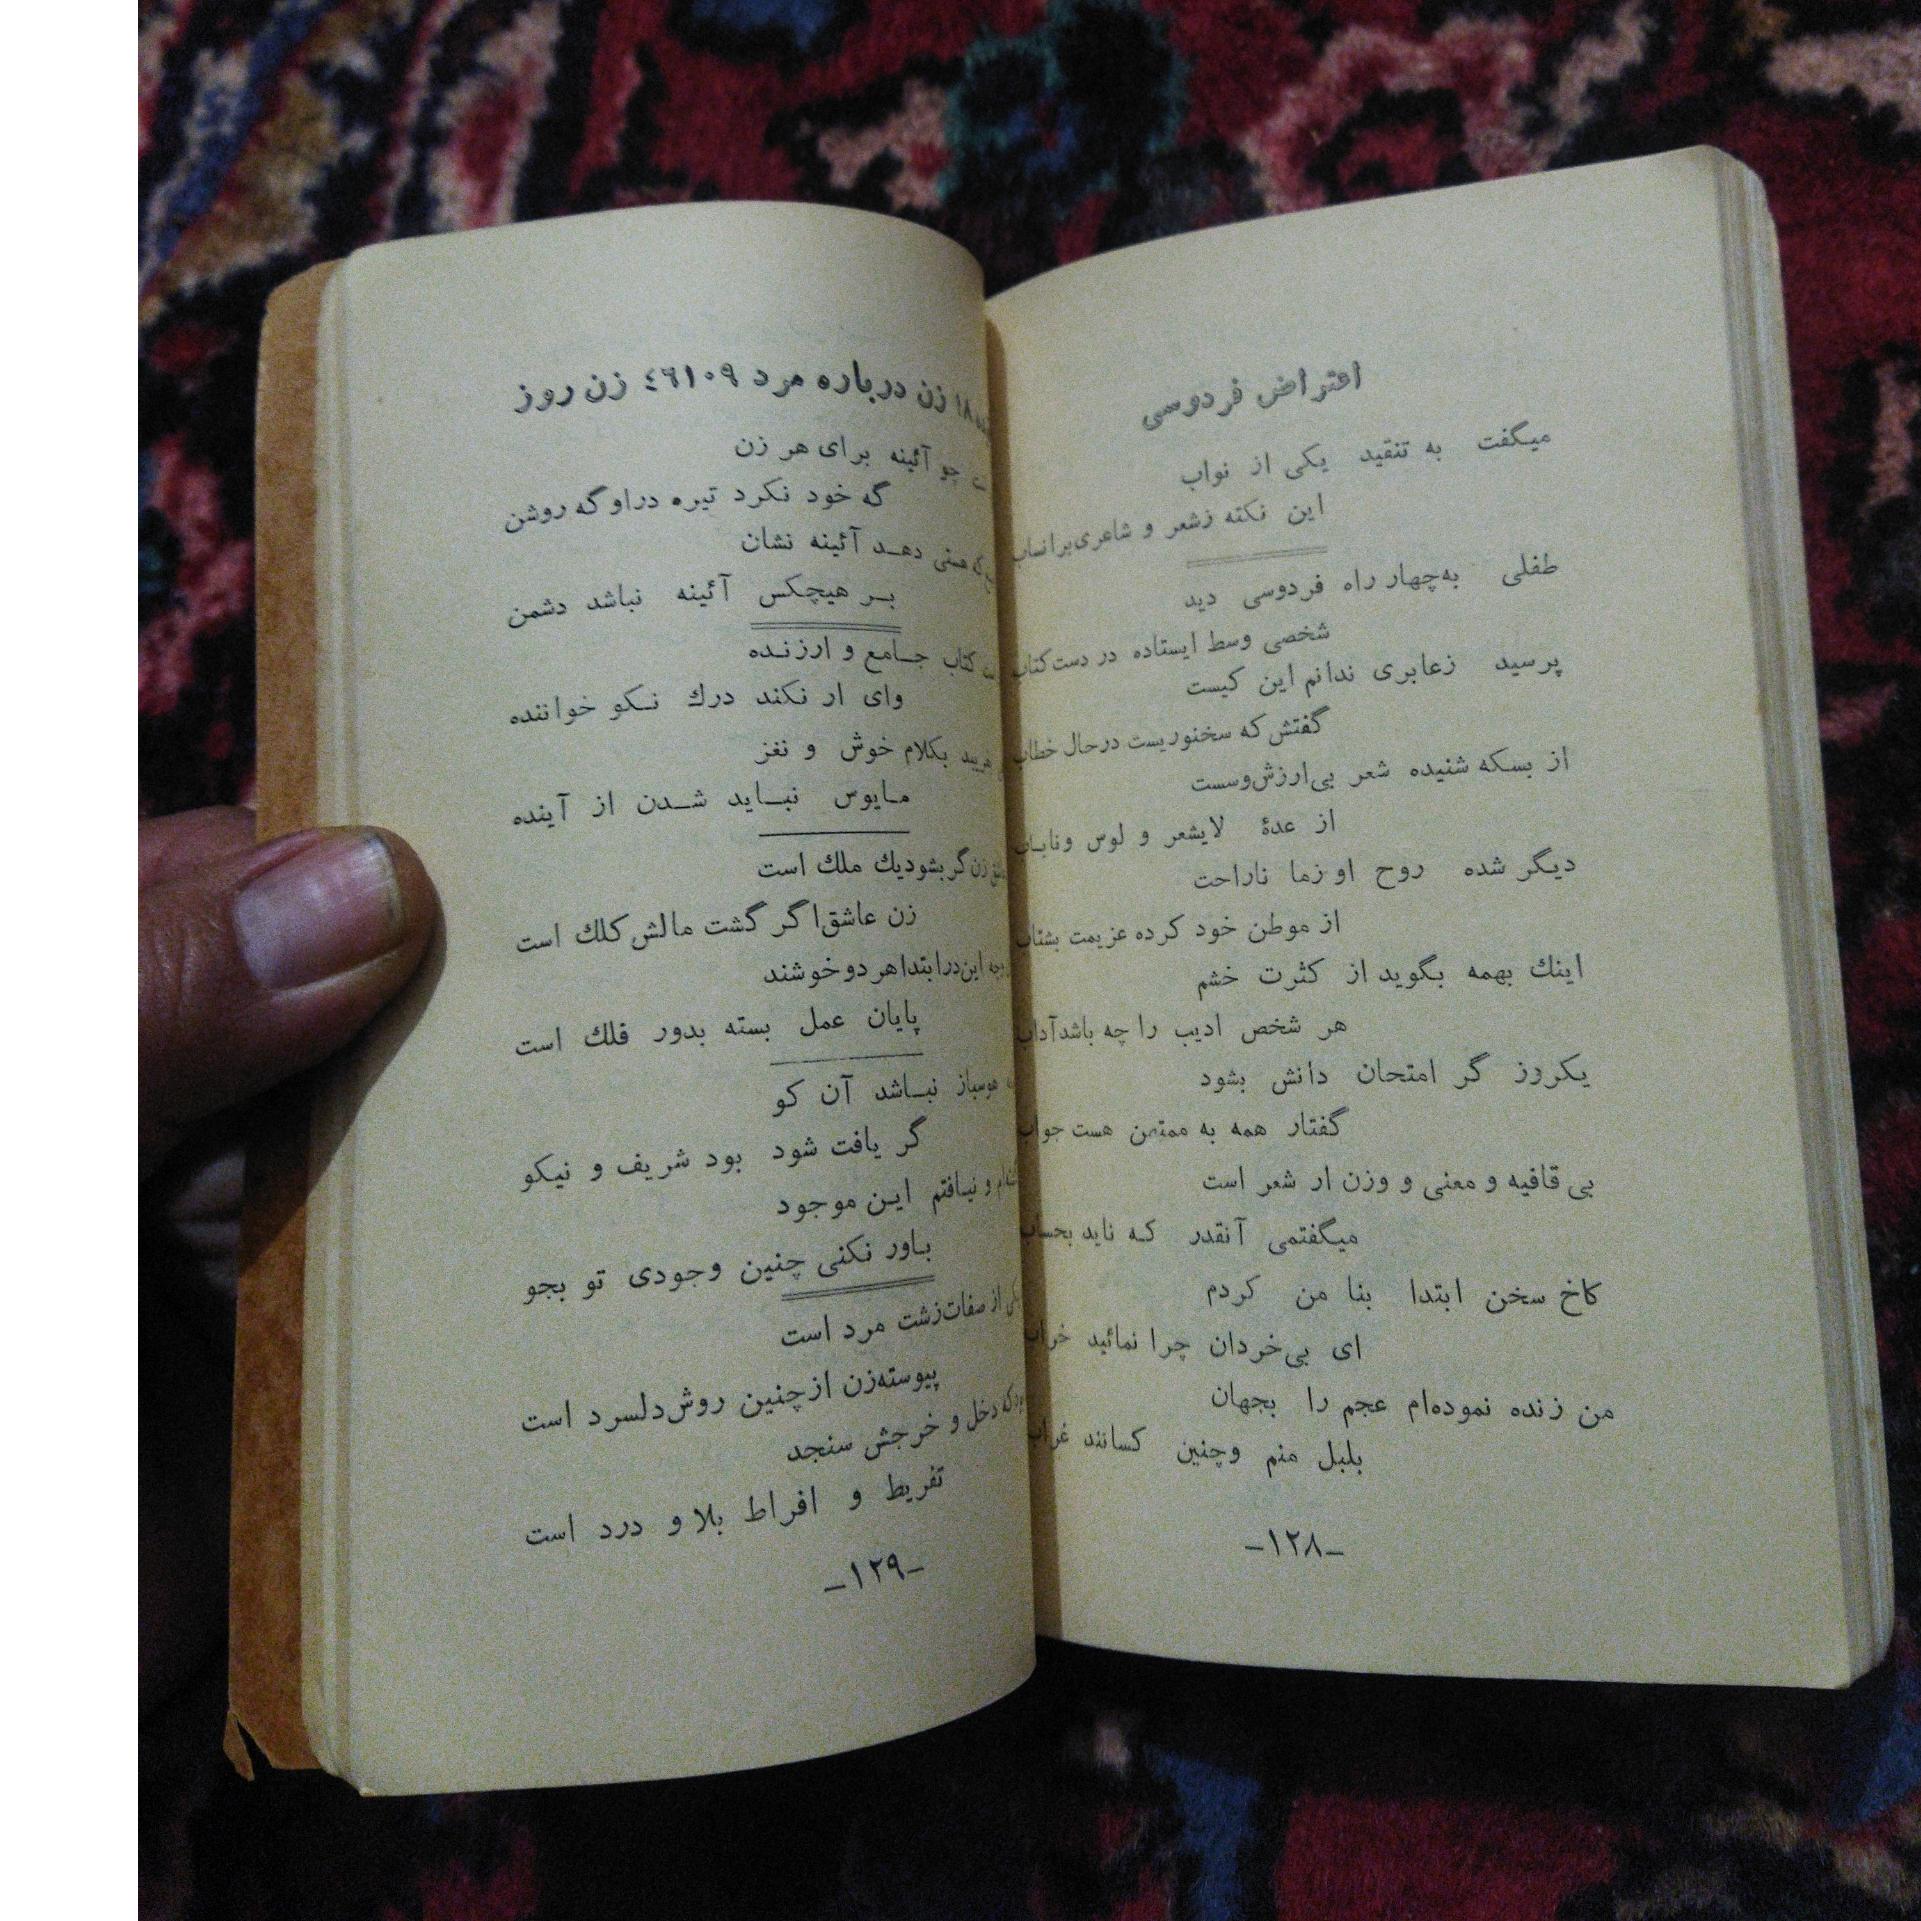 اعتراض فردوسی
میگفت به تنقید یکی از نواب
این نکته زشعر و شاعری برانساب
طفلی به‌چهار راه فردوسی دید
شخصی وسط ایستاده در دست کتاب
پرسید زعابری ندانم این کیست
گفتش که سخنوریست درحال خطاب
از بسکه شنیده شعر بی‌ارزش‌وسست
از عدهٔ لایشعر و لوس وناباب
دیگر شده روح او زما ناراحت
از موطن خود کرده عزیمت بشتاب
اینك بهمه بگوید از کثرت خشم
هر شخص ادیب را چه باشدآداب
یکروز گر امتحان دانش بشود
گفتار همه به ممتحن هست جواب
بی قافیه و معنی و وزن ار شعر است
میگفتمی آنقدر که ناید بحساب
کاخ سخن ابتدا بنا من کردم
ای بی‌خردان چرا نمائید خراب
من زنده نموده‌ام عجم را بجهان
بلبل منم وچنین کسانند غراب
-۱۲۸-
۱۸ زن درباره مرد ٤٦١٠٩ زن روز
چو آئینه برای هر زن
گه خود نکرد تیره دراو گه روشن
که هستی دهد آئینه نشان
بر هیچکس آئینه نباشد دشمن
کتاب جامع و ارزنده
وای ار نکند درك نکو خواننده
بکلام خوش و نغز
مایوس نباید شدن از آینده
زن گر بشودیك ملك است
زن عاشق‌اگر گشت مالش کلك است
این‌درابتداهر دو خوشند
پایان عمل بسته بدور فلك است
هوسباز نباشد آن کو
گر یافت شود بود شریف و نیکو
و نیافتم این موجود
باور نکنی چنین وجودی تو بجو
از صفات‌زشت مرد است
پیوسته‌زن ازچنین روش‌دلسرد است
که دخل و خرجش سنجد
تفریط و افراط بلا و درد است
-۱۲۹-